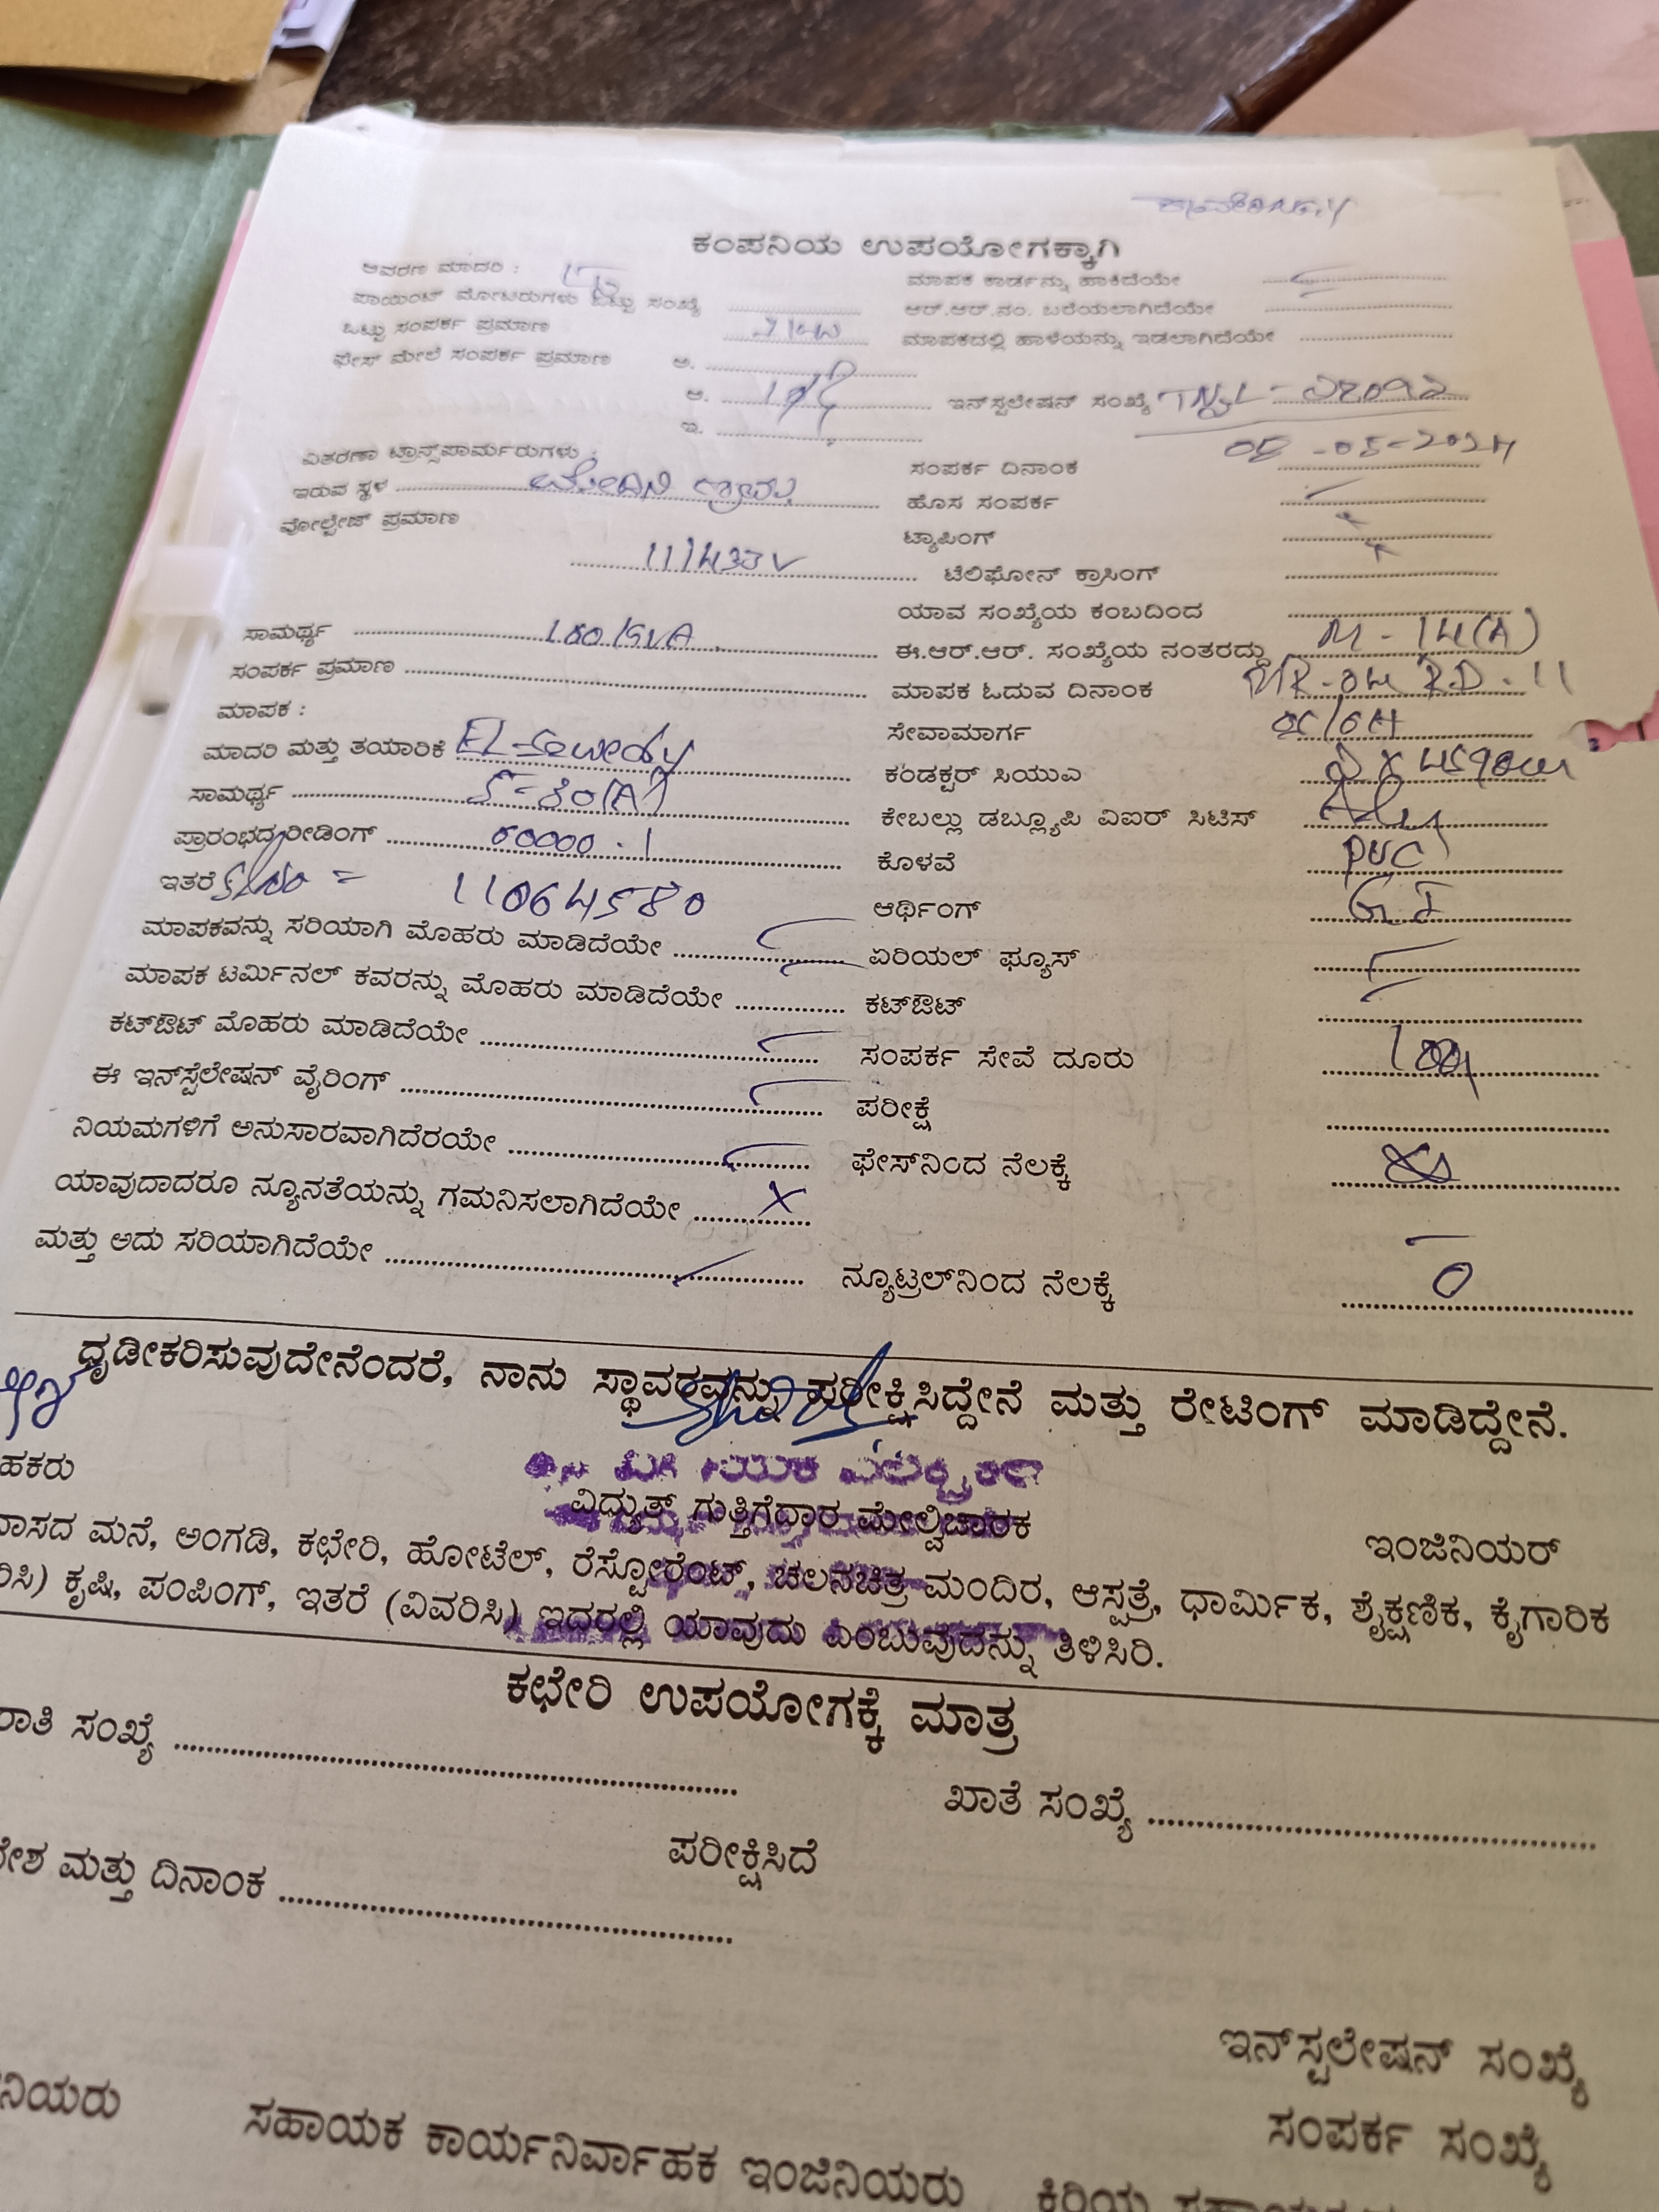 ಕಂಪನಿಯ ಉಪಯೋಗಕ್ಕಾಗಿ
ಆವರಣ ಮಾದರಿ :
ಮಾಪಕ ಕಾರ್ಡನ್ನು ಹಾಕಿದೆಯೇ
ಪಾಯಿಂಟ್ ಮೋಟರುಗಳು ಒಟ್ಟು ಸಂಖ್ಯೆ
ಆರ್.ಆರ್.ನಂ. ಬರೆಯಲಾಗಿದೆಯೇ
ಒಟ್ಟು ಸಂಪರ್ಕ ಪ್ರಮಾಣ
ಮಾಪಕದಲ್ಲಿ ಹಾಳೆಯನ್ನು ಇಡಲಾಗಿದೆಯೇ
ಫೇಸ್ ಮೇಲೆ ಸಂಪರ್ಕ ಪ್ರಮಾಣ ಅ.
ಆ. ಇನ್‌ಸ್ಟಲೇಷನ್ ಸಂಖ್ಯೆ
ಇ.
ವಿತರಣಾ ಟ್ರಾನ್ಸ್‌ಪಾರ್ಮರುಗಳು :
ಸಂಪರ್ಕ ದಿನಾಂಕ 08-05-2024
ಇರುವ ಸ್ಥಳ
ಹೊಸ ಸಂಪರ್ಕ
ವೋಲ್ಟೇಜ್ ಪ್ರಮಾಣ 11/433V
ಟ್ಯಾಪಿಂಗ್
ಟೆಲಿಫೋನ್ ಕ್ರಾಸಿಂಗ್
ಯಾವ ಸಂಖ್ಯೆಯ ಕಂಬದಿಂದ
ಸಾಮರ್ಥ್ಯ 100 KVA
ಈ.ಆರ್.ಆರ್. ಸಂಖ್ಯೆಯ ನಂತರದ್ದು M-14(A)
ಸಂಪರ್ಕ ಪ್ರಮಾಣ
ಮಾಪಕ ಓದುವ ದಿನಾಂಕ MR-04 RD-11
ಮಾಪಕ :
ಸೇವಾಮಾರ್ಗ
ಮಾದರಿ ಮತ್ತು ತಯಾರಿಕೆ EL-Sewedy
ಕಂಡಕ್ಟರ್ ಸಿಯುಎ
ಸಾಮರ್ಥ್ಯ
ಕೇಬಲ್ಲು ಡಬ್ಲ್ಯೂಪಿ ವಿಐರ್ ಸಿಟಿಸ್
ಪ್ರಾರಂಭದ ರೀಡಿಂಗ್ 00000.1
ಕೊಳವೆ PVC
ಇತರೆ Sl No = 11064580
ಆರ್ಥಿಂಗ್ G.I
ಮಾಪಕವನ್ನು ಸರಿಯಾಗಿ ಮೊಹರು ಮಾಡಿದೆಯೇ
ಏರಿಯಲ್ ಫ್ಯೂಸ್
ಮಾಪಕ ಟರ್ಮಿನಲ್ ಕವರನ್ನು ಮೊಹರು ಮಾಡಿದೆಯೇ
ಕಟ್‌ಔಟ್
ಕಟ್‌ಔಟ್ ಮೊಹರು ಮಾಡಿದೆಯೇ
ಸಂಪರ್ಕ ಸೇವೆ ದೂರು
ಈ ಇನ್‌ಸ್ಟೆಲೇಷನ್ ವೈರಿಂಗ್
ಪರೀಕ್ಷೆ
ನಿಯಮಗಳಿಗೆ ಅನುಸಾರವಾಗಿದೆರಯೇ
ಫೇಸ್‌ನಿಂದ ನೆಲಕ್ಕೆ
ಯಾವುದಾದರೂ ನ್ಯೂನತೆಯನ್ನು ಗಮನಿಸಲಾಗಿದೆಯೇ
ಮತ್ತು ಅದು ಸರಿಯಾಗಿದೆಯೇ
ನ್ಯೂಟ್ರಲ್‌ನಿಂದ ನೆಲಕ್ಕೆ 0
ಧೃಡೀಕರಿಸುವುದೇನೆಂದರೆ, ನಾನು ಸ್ಥಾವರವನ್ನು ಪರೀಕ್ಷಿಸಿದ್ದೇನೆ ಮತ್ತು ರೇಟಿಂಗ್ ಮಾಡಿದ್ದೇನೆ.
ಹಕರು
ವಿಧ್ಯುತ್ ಗುತ್ತಿಗೆದಾರ ಮೇಲ್ವಿಚಾರಕ
ಇಂಜಿನಿಯರ್
ವಾಸದ ಮನೆ, ಅಂಗಡಿ, ಕಛೇರಿ, ಹೋಟೆಲ್, ರೆಸ್ಟೋರೆಂಟ್, ಚಲನಚಿತ್ರ ಮಂದಿರ, ಆಸ್ಪತ್ರೆ, ಧಾರ್ಮಿಕ, ಶೈಕ್ಷಣಿಕ, ಕೈಗಾರಿಕ
ರಿಸಿ) ಕೃಷಿ, ಪಂಪಿಂಗ್, ಇತರೆ (ವಿವರಿಸಿ) ಇದರಲ್ಲಿ ಯಾವುದು ಎಂಬುವುದನ್ನು ತಿಳಿಸಿರಿ.
ಕಛೇರಿ ಉಪಯೋಗಕ್ಕೆ ಮಾತ್ರ
ರಾತಿ ಸಂಖ್ಯೆ
ಖಾತೆ ಸಂಖ್ಯೆ
ಪರೀಕ್ಷಿಸಿದೆ
ೇಶ ಮತ್ತು ದಿನಾಂಕ
ಇನ್‌ಸ್ಟಲೇಷನ್ ಸಂಖ್ಯೆ
ಸಂಪರ್ಕ ಸಂಖ್ಯೆ
ನಿಯರು
ಸಹಾಯಕ ಕಾರ್ಯನಿರ್ವಾಹಕ ಇಂಜಿನಿಯರು
ಕಿರಿಯ